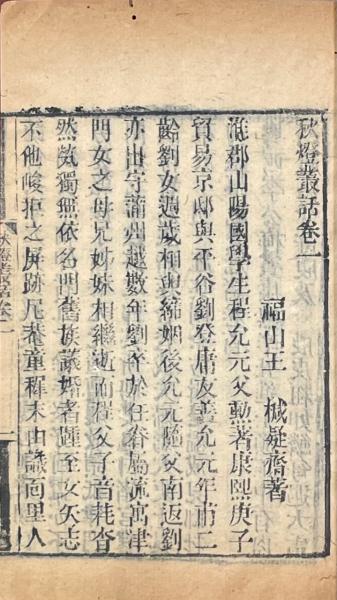 秋燈叢話卷一
福山王 椷疑齋著
淮郡山陽國學生程允元父勳著康熙庚子
貿易京邸與平谷劉登庸友善允元年甫二
齡劉女過歲相與締姻後允元隨父南返劉
亦出守蒲州越數年劉卒於任眷屬流寓津
門女之母兄姊妹相繼逝而程父子音耗杳
然煢獨無依名門舊族議婚者踵至女矢志
不他峻拒之屏跡尼菴童稺未由識面里人